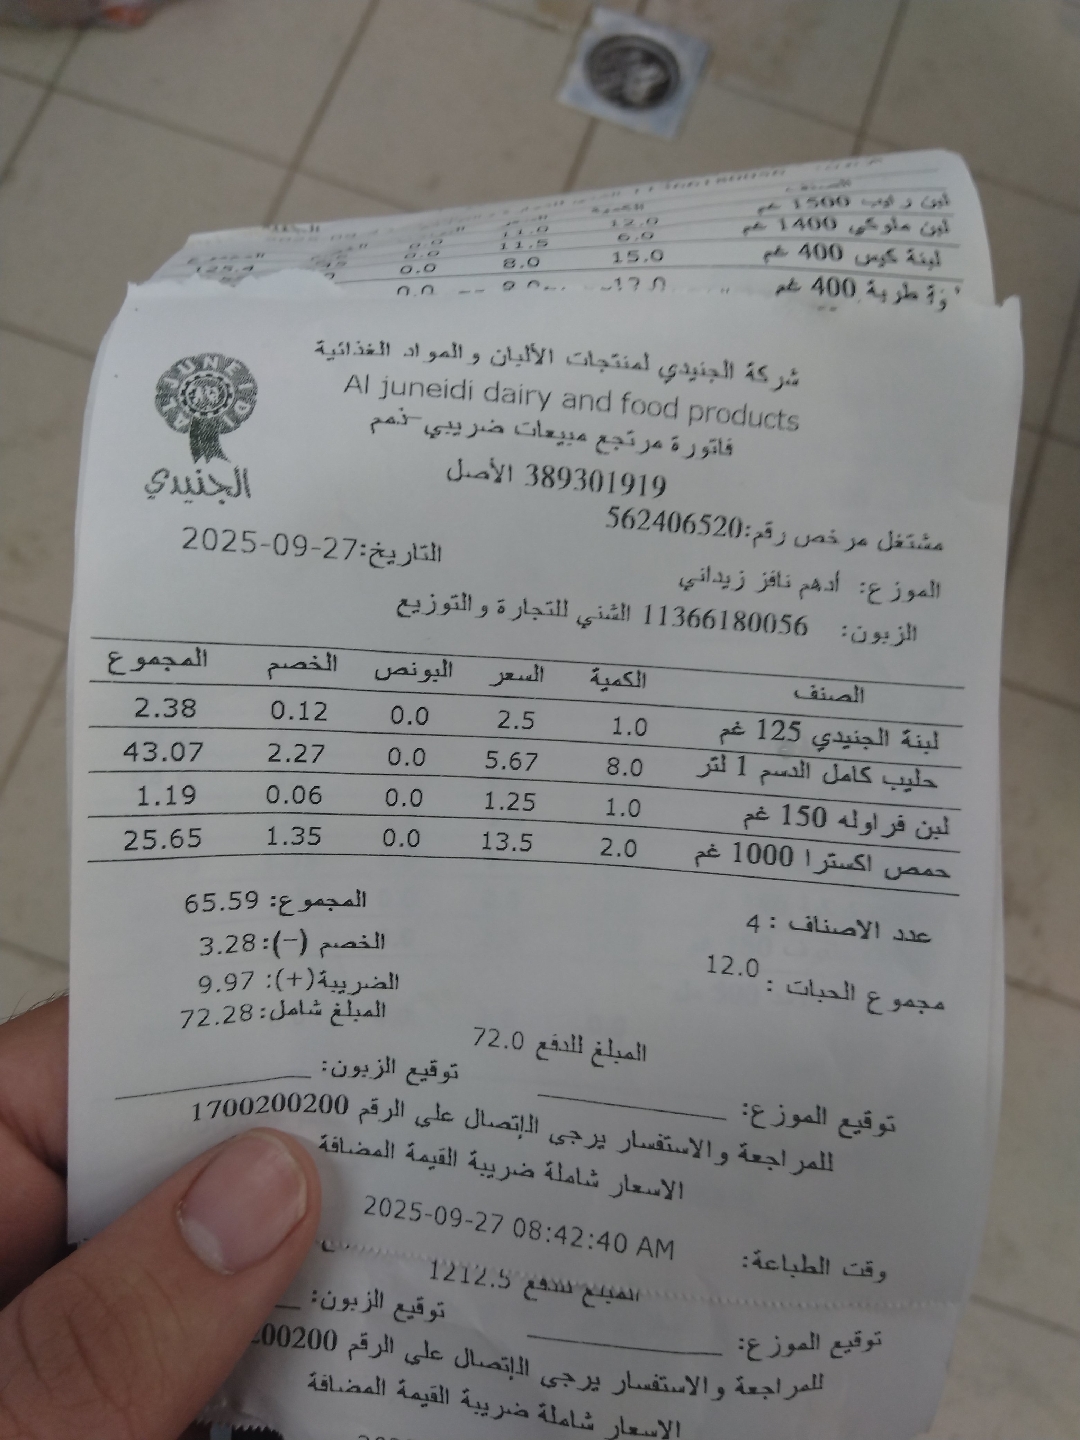 الصنف
لبن رايب 1500 غم 12.0 11.0 0.0
لبن ملوكي 1400 غم 6.0 11.5 0.0
لبنة كيس 400 غم 15.0 8.0 0.0
طرية 400 غم 0.0
شركة الجنيدي لمنتجات الألبان والمواد الغذائية
Al juneidi dairy and food products
فاتورة مرتجع مبيعات ضريبي-ذمم
389301919 الأصل
JUNEIDI
الجنيدي
مشتغل مرخص رقم:562406520
التاريخ:2025-09-27
الموزع: أدهم نافز زيداني
الزبون: 11366180056 الشني للتجارة والتوزيع
الصنف الكمية السعر البونص الخصم المجموع
لبنة الجنيدي 125 غم 1.0 2.5 0.0 0.12 2.38
حليب كامل الدسم 1 لتر 8.0 5.67 0.0 2.27 43.07
لبن فراوله 150 غم 1.0 1.25 0.0 0.06 1.19
حمص اكسترا 1000 غم 2.0 13.5 0.0 1.35 25.65
عدد الاصناف : 4 المجموع: 65.59
الخصم (-): 3.28
مجموع الحبات : 12.0 الضريبة(+): 9.97
المبلغ شامل: 72.28
المبلغ للدفع 72.0
توقيع الموزع: ________ توقيع الزبون: ________
للمراجعة والاستفسار يرجى الإتصال على الرقم 1700200200
الاسعار شاملة ضريبة القيمة المضافة
وقت الطباعة: 2025-09-27 08:42:40 AM
المبلغ للدفع 1212.5
توقيع الموزع: ________ توقيع الزبون:
للمراجعة والاستفسار يرجى الإتصال على الرقم 200200
الاسعار شاملة ضريبة القيمة المضافة